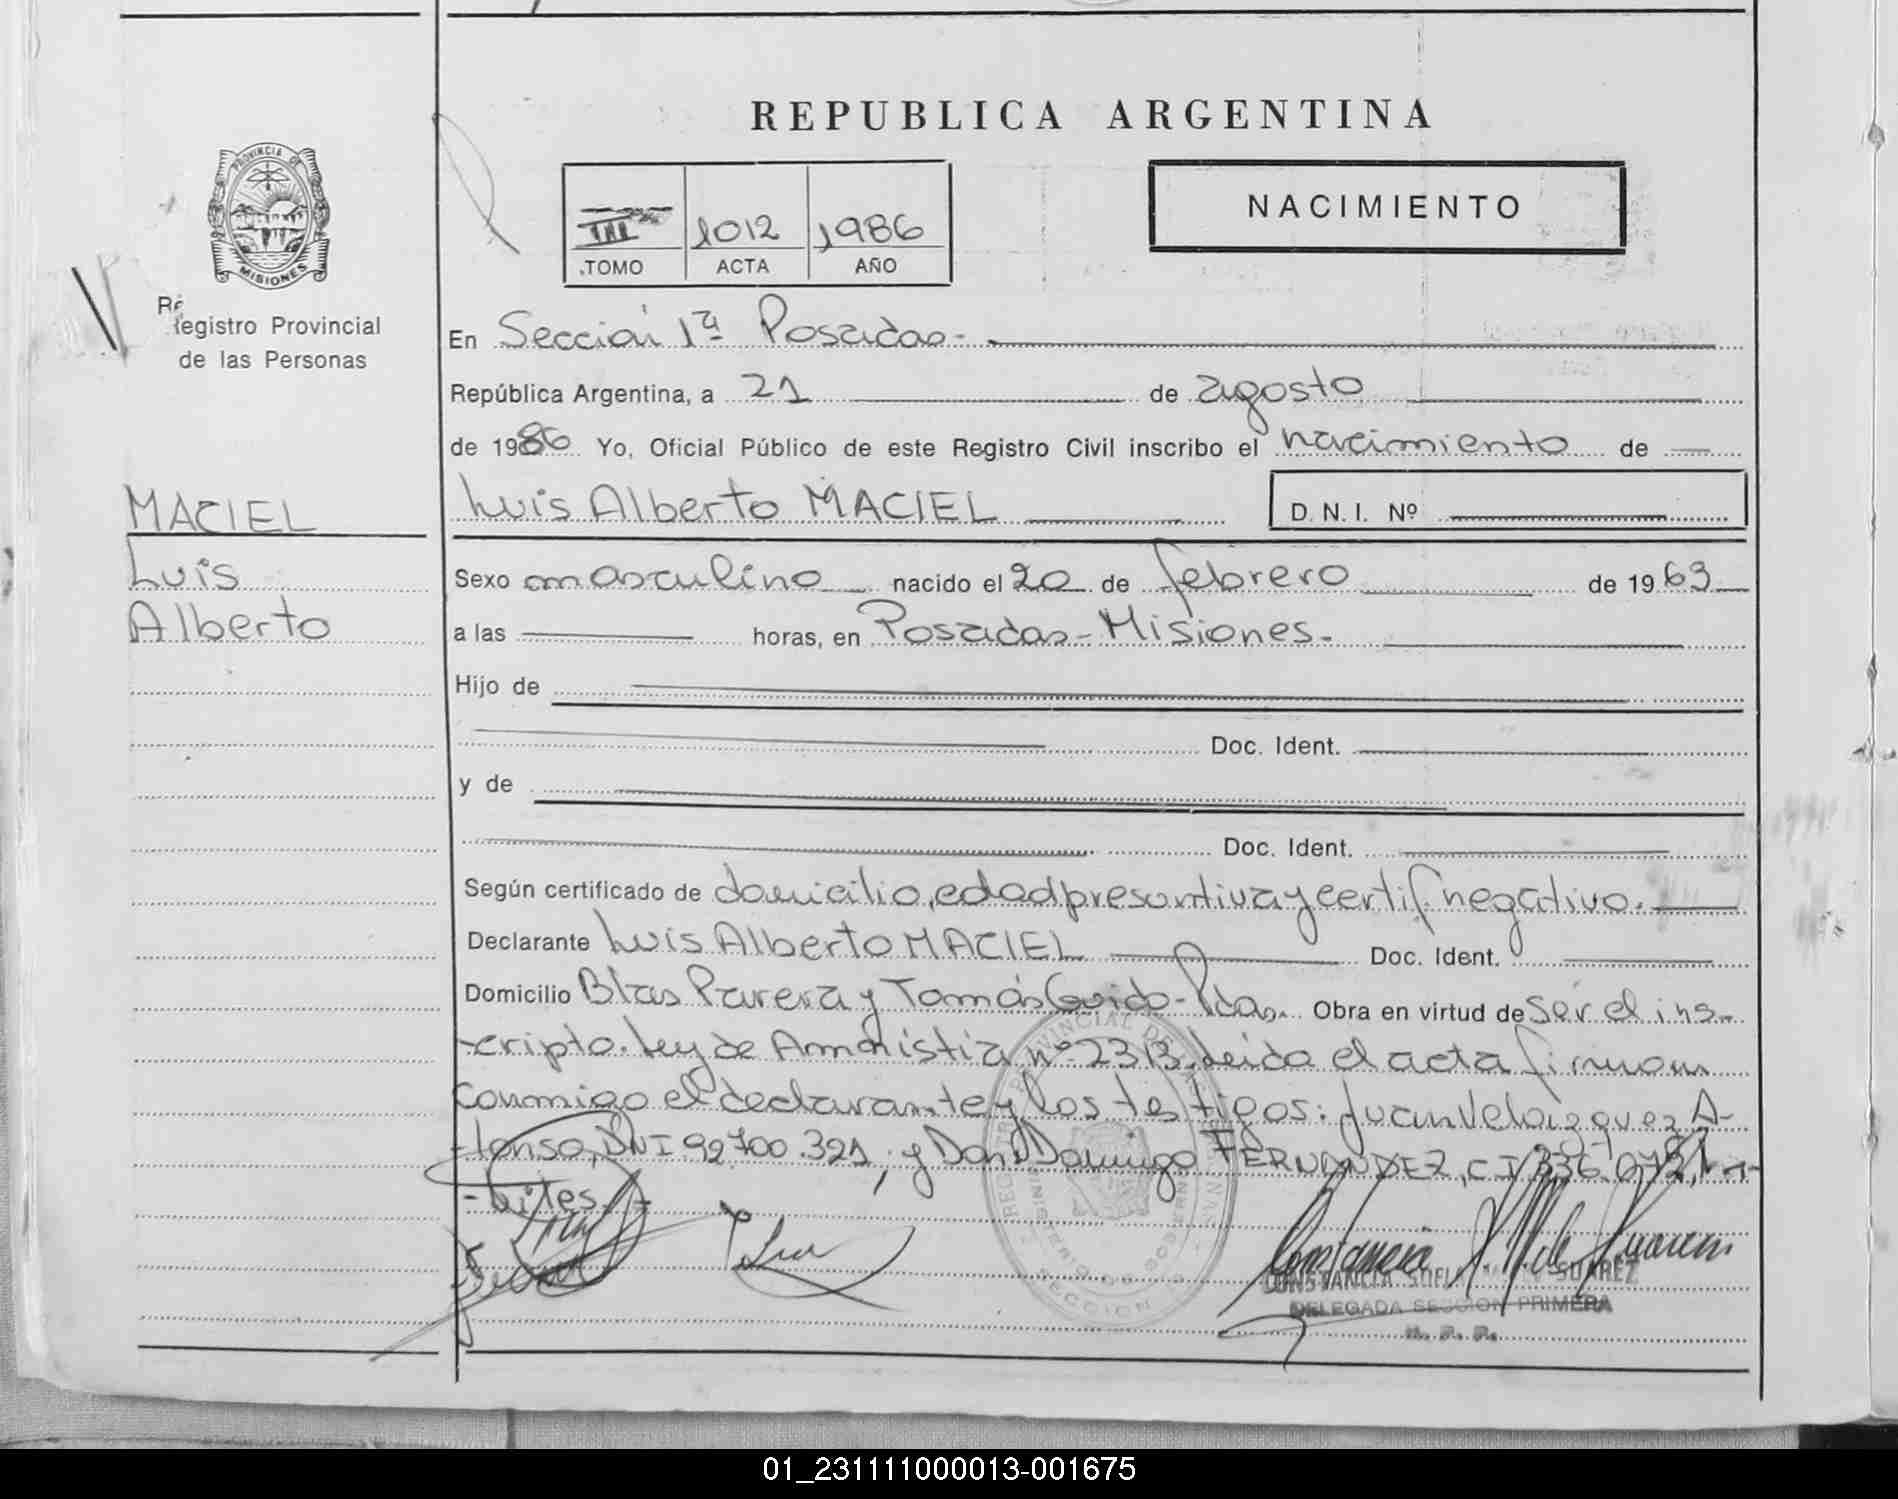 REPUBLICA ARGENTINA
PROVINCIA DE
MISIONES
III 1012 1986
TOMO ACTA AÑO
NACIMIENTO
Registro Provincial
de las Personas
En Sección 1ª Posadas-
República Argentina, a 21 de agosto
de 1986 Yo, Oficial Público de este Registro Civil inscribo el nacimiento de
MACIEL
Luis Alberto MACIEL D.N.I. Nº
Luis
Alberto
Sexo masculino nacido el 20 de febrero de 1963
a las horas, en Posadas-Misiones.
Hijo de
Doc. Ident.
y de
Doc. Ident.
Según certificado de domicilio, edad presuntiva y certif negativo.
Declarante Luis Alberto MACIEL Doc. Ident.
Domicilio Blas Parera y Tomás Guido-Pdas. Obra en virtud de ser el ins-
-cripto. Ley de Amnistia nº 2313, leida el acta firman
conmigo el declarante y los testigos: Juan Velazquez A-
-lonso, DNI 92.700.321, y Don Domingo FERNANDEZ, CI 336.
CONSTANCIA SOFIA SUAREZ
DELEGADA SECCION PRIMERA
R. P. P.
01_231111000013-001675